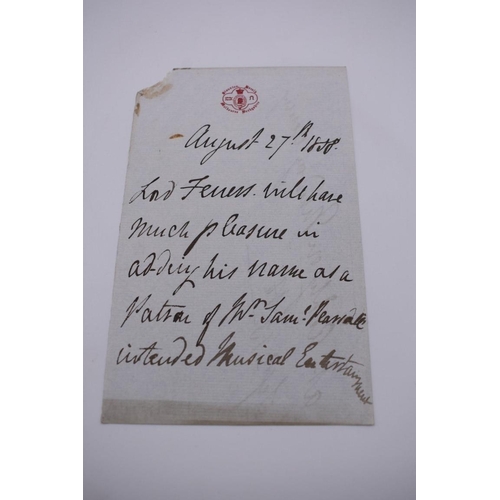 August 27th 1858.
Lord Ferrers. will have
much pleasure in
adding his name as a
Patron of Mr. Saml.
intended Musical Entertainment